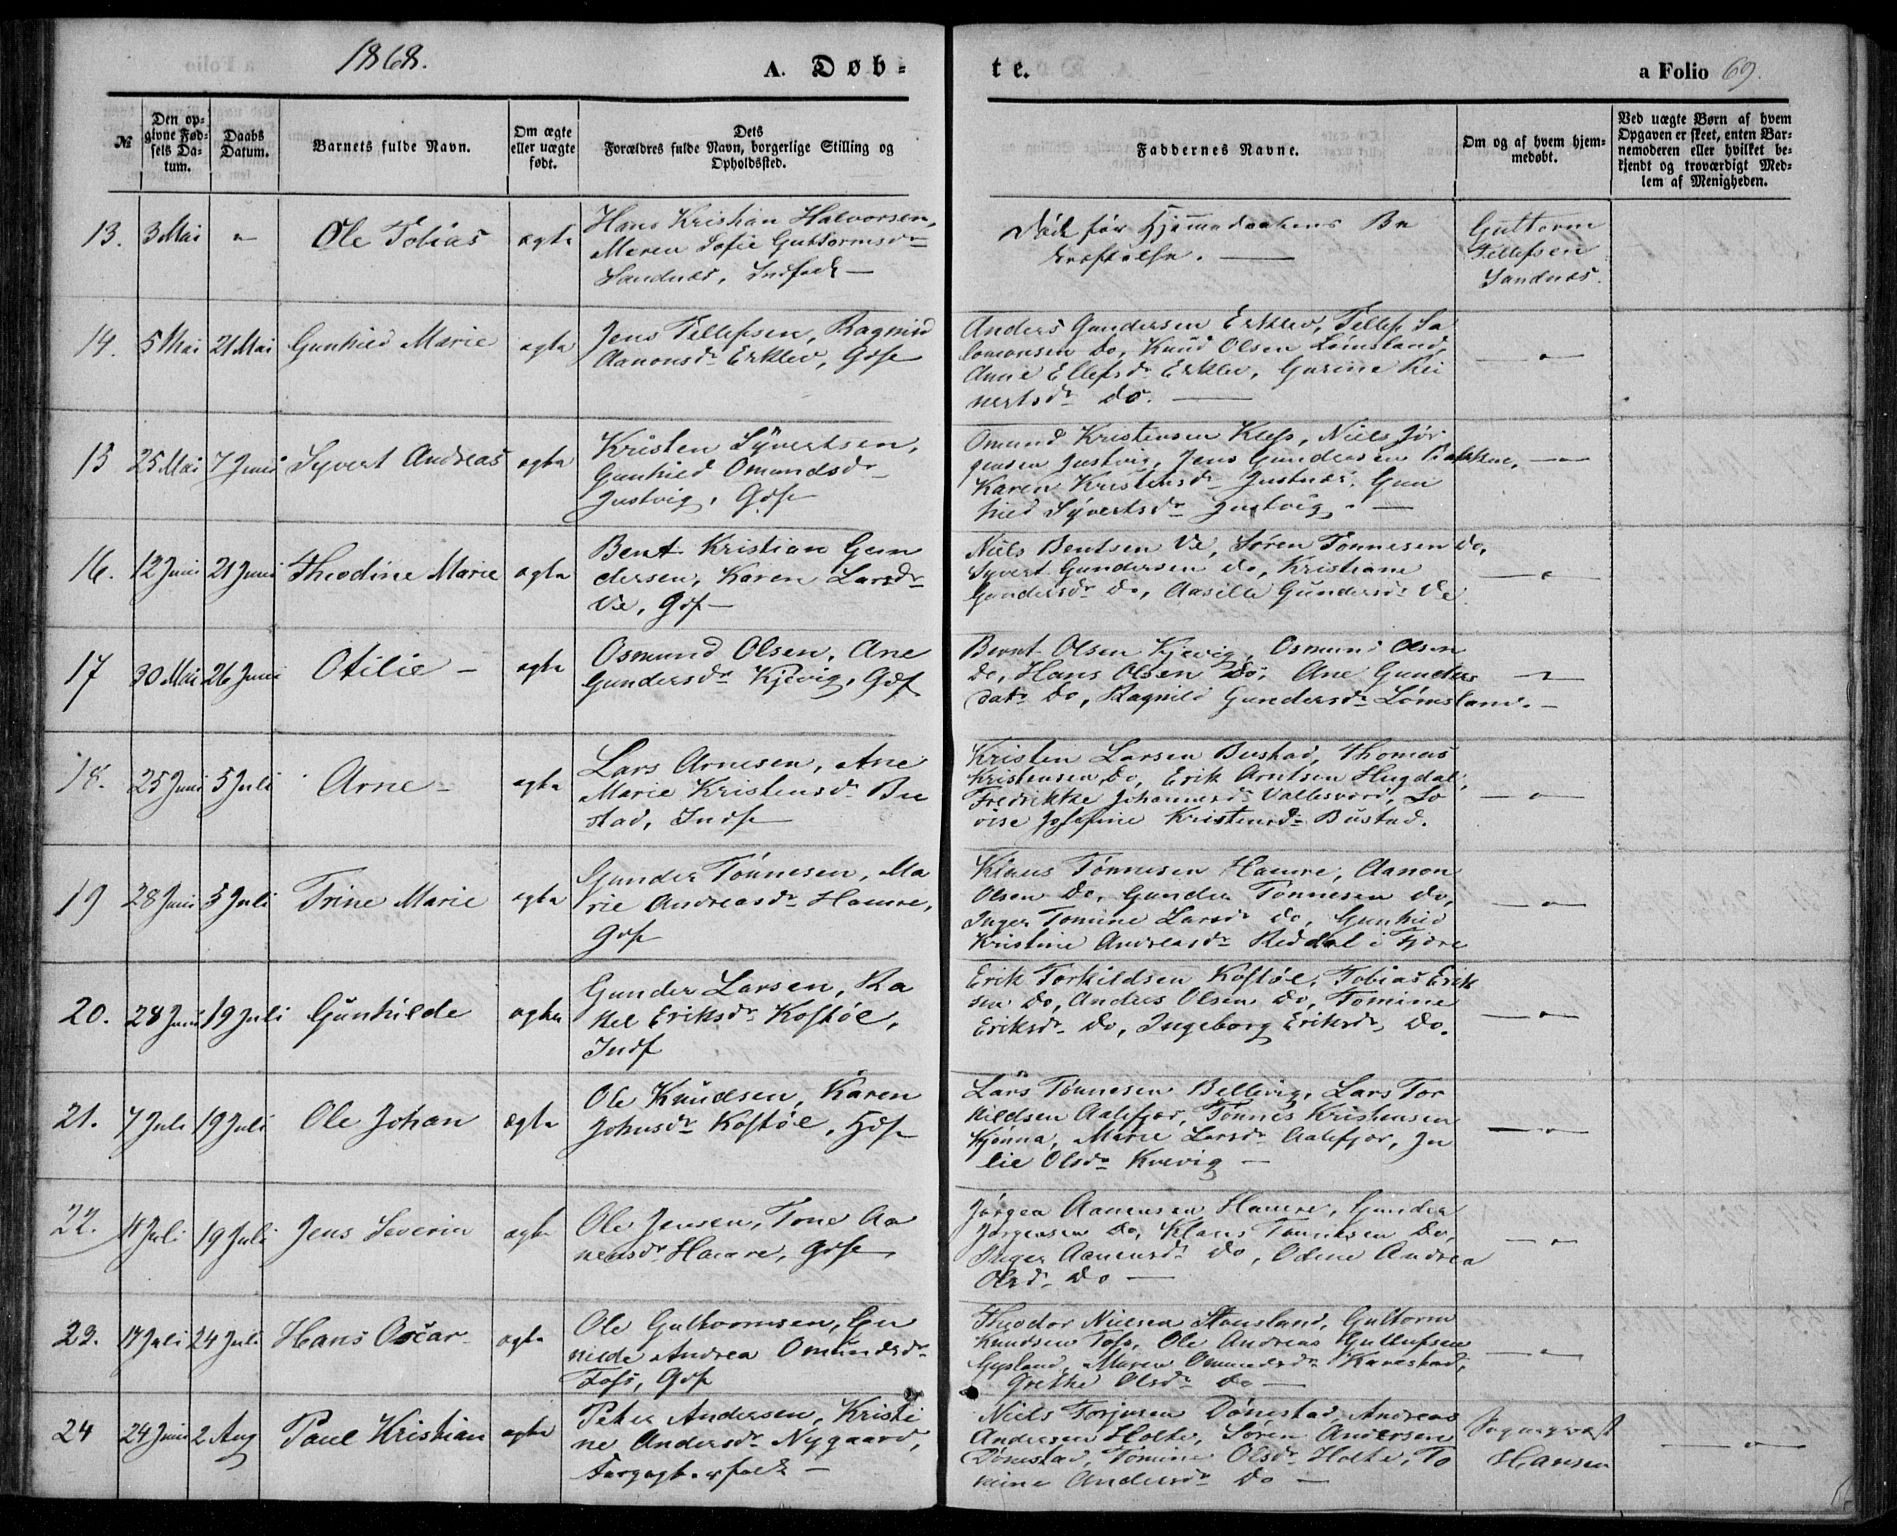 1868.
A. Døb-
te.
a Folio 69.
№
Den op-
givne Fød-
sels Da-
tum.
Daabs
Datum.
Barnets fulde Navn.
Om ægte
eller uægte
født.
Dets
Forældres fulde Navn, borgerlige Stilling og
Opholdssted.
Faddernes Navne.
Om og af hvem hjem-
medøbt.
Ved uægte Børn af hvem
Opgaven er skeet, enten Bar-
nemoderen eller hvilket be-
kjendt og troværdigt Med-
lem af Menigheden.
13. 3 Mai Ole Tobias ægte
Hans Kristian Halvorsen,
Maren Sofie Guttormsdr
Sandnæs, Indf
Død før Hjemmedaabens Be
kræftelse. —
Guttorm
Tellefsen
Sandnæs.
14. 5 Mai 21 Mai Gunhild Marie ægte
Jens Tellefsen, Ragnild
Aanonsdr Erklev, Gdf
Anders Gundersen Erklev, Tellef Sa
lomonsen Do, Knud Olsen Lømsland,
Anne Ellefsdr Erklev, Gurine Rei
nertsdr Do. —
15 25 Mai 7 Juni Syvert Andreas ægte
Kristen Syvertsen,
Gunhild Omundsdr
Justvig, Gdf
Omund Kristensen Kleps, Niels Jør
gensen Justvig, Jens Gundersen Bakken,
Karen Kristensdr Justnæs, Gun
hild Syvertsdr Justvig. —
16. 12 Juni 21 Juni Theodine Marie ægte
Bent Kristian Gun
dersen, Karen Larsdr
Ve, Gdf —
Niels Bentsen Ve, Søren Tønnesen Do,
Syvert Gundersen Do, Kristiane
Gundersdr Do, Aasille Gundersdr Ve
17 30 Mai 26 Juni Otilie — ægte
Osmund Olsen, Ane
Gundersdr Kjevig, Gdf
Bernt Olsen Kjevig, Osmund Olsen
Do, Hans Olsen Do, Ane Gunders
datr Do, Ragnild Gundersdr Lømsland. —
18. 25 Juni 5 Juli Arne — ægte
Lars Arnesen, Ane
Marie Kristensdr Bu
stad, Indf
Kristen Larsen Bustad, Thomas
Kristensen Do, Erik Arntsen Hugdal,
Fredrikke Johannesdr Vallesværd, Lo
vise Josefine Kristensdr Bustad.
19 28 Juni 5 Juli Trine Marie ægte
Gunder Tønnesen, Ma
rie Andreasdr Hamre,
Gdf
Klaus Tønnesen Hamre, Aanon
Olsen Do, Gunder Tønnesen Do,
Inger Tomine Larsdr Do, Gunhild
Kristine Andreasdr Reddal i Fjære
20. 28 Juni 19 Juli Gunhilde ægte
Gunder Larsen, Ra
kel Eriksdr Kostøl,
Indf
Erik Torkildsen Kostøl, Tobias Erik
sen Do, Anders Olsen Do, Tomine
Eriksdr Do, Ingeborg Eriksdr Do.
21. 7 Juli 19 Juli Ole Johan ægte
Ole Knudsen, Karen
Johnsdr Kostøl, Hdf
Lars Tønnesen Bellevig, Lars Tor
kildsen Aalefjær, Tønnes Kristensen
Kjønna, Marie Larsdr Aalefjær, Ju
lie Olsdr Kvevig —
22. 11 Juli 19 Juli Jens Severin ægte
Ole Jensen, Tone Aa
nensdr Hamre, Gdf
Jørgen Aanensen Hamre, Gunder
Jørgensen Do, Klaus Tønnesen Do,
Inger Aanensdr Do, Odine Andrea
Olsdr Do —
23. 17 Juli 24 Juli Hans Oscar ægte
Ole Guttormsen, Gu
nilde Andrea Omundsdr
Fofs, Gdf
Theodor Nielsen Stensland, Guttorm
Knudsen Fofs, Ole Andreas Gullufsen
Maren Omundsdr
Grethe Olsdr Do —
24 24 Juni 2 Aug Paul Kristian ægte
Peter Andersen, Kristi
ne Andersdr Nygaard,
Niels Torjusen Dønnestad, Andreas
Andersen Holte, Søren Andersen
Dønnestad, Tomine Olsdr Holte, To
mine Andersdr Do —
Sogneprest
Hansen